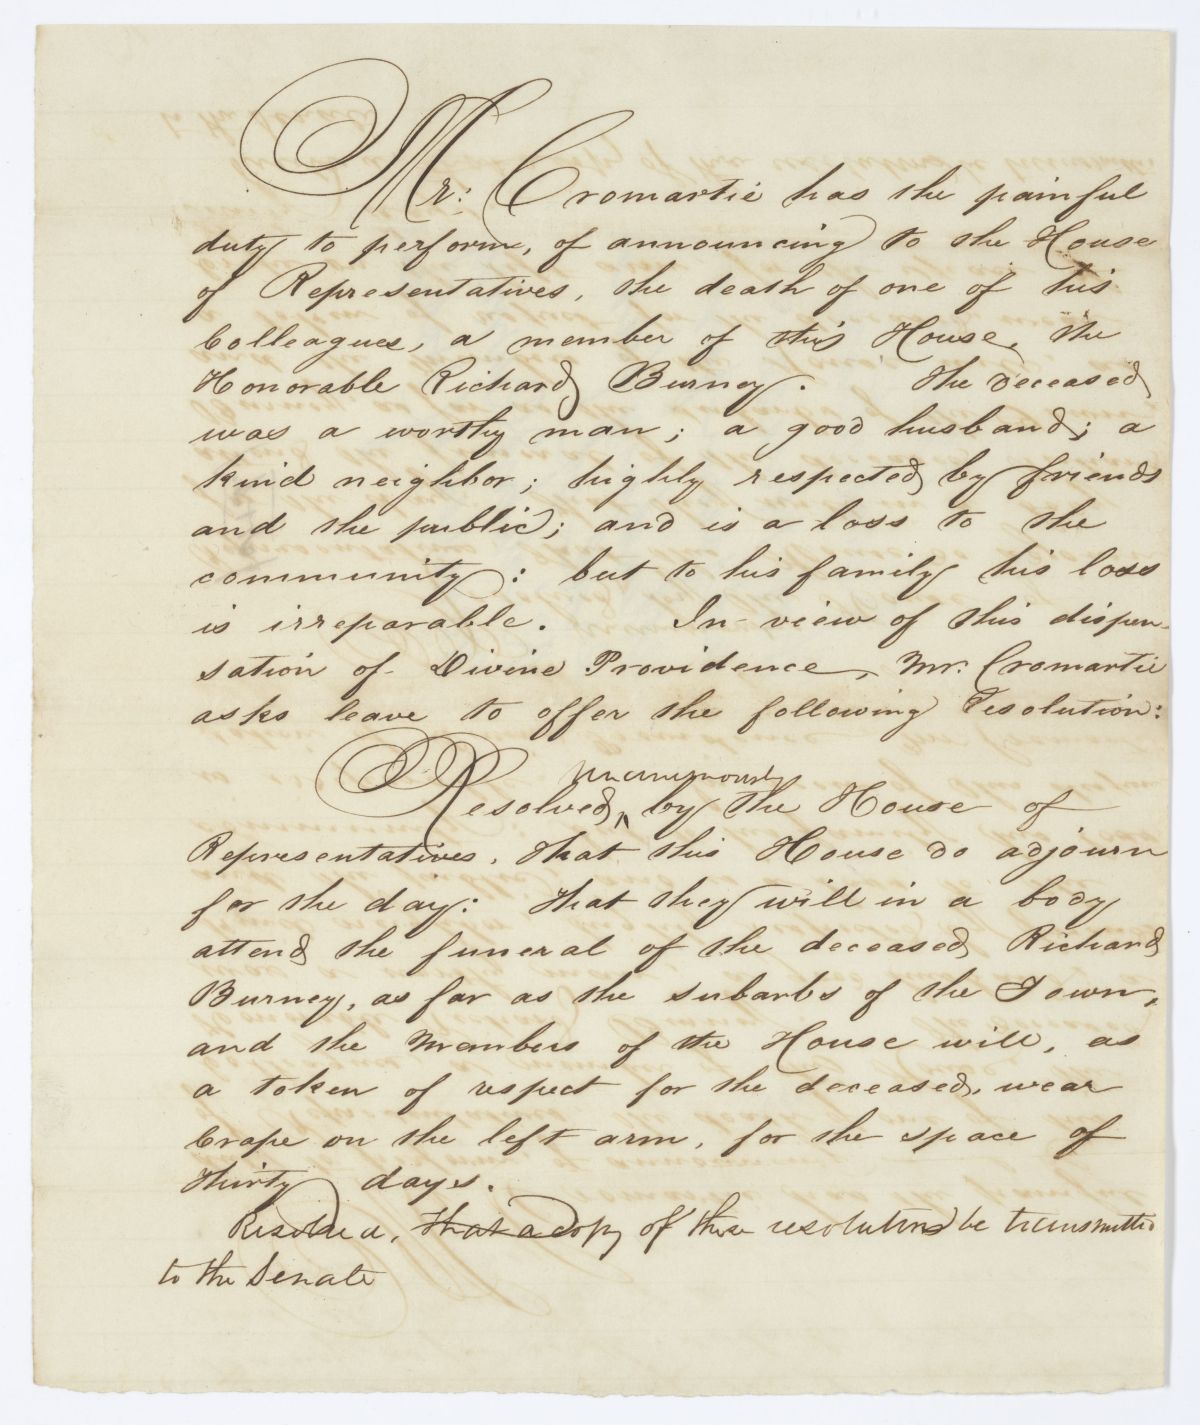 Mr: Cromartie has the painful
duty to perform, of announcing to the House
of Representatives, the death of one of his
Colleagues, a member of this House, the
Honorable Richard Burney. The deceased
was a worthy man; a good husband; a
kind neighbor; highly respected by friends
and the public; and is a loss to the
community: but to his family his loss
is irreparable. In view of this dispen-
sation of Divine Providence, Mr. Cromartie
asks leave to offer the following Resolution:
unanimously
Resolved, by the House of
Representatives, That this House do adjourn
for the day: That they will in a body
attend the funeral of the deceased, Richard
Burney, as far as the subarbs of the Town,
and the Members of the House will, as
a token of respect for the deceased, wear
Crape on the left arm, for the space of
Thirty days.
Resolved, That a copy of these resolutions be transmitted
to the Senate